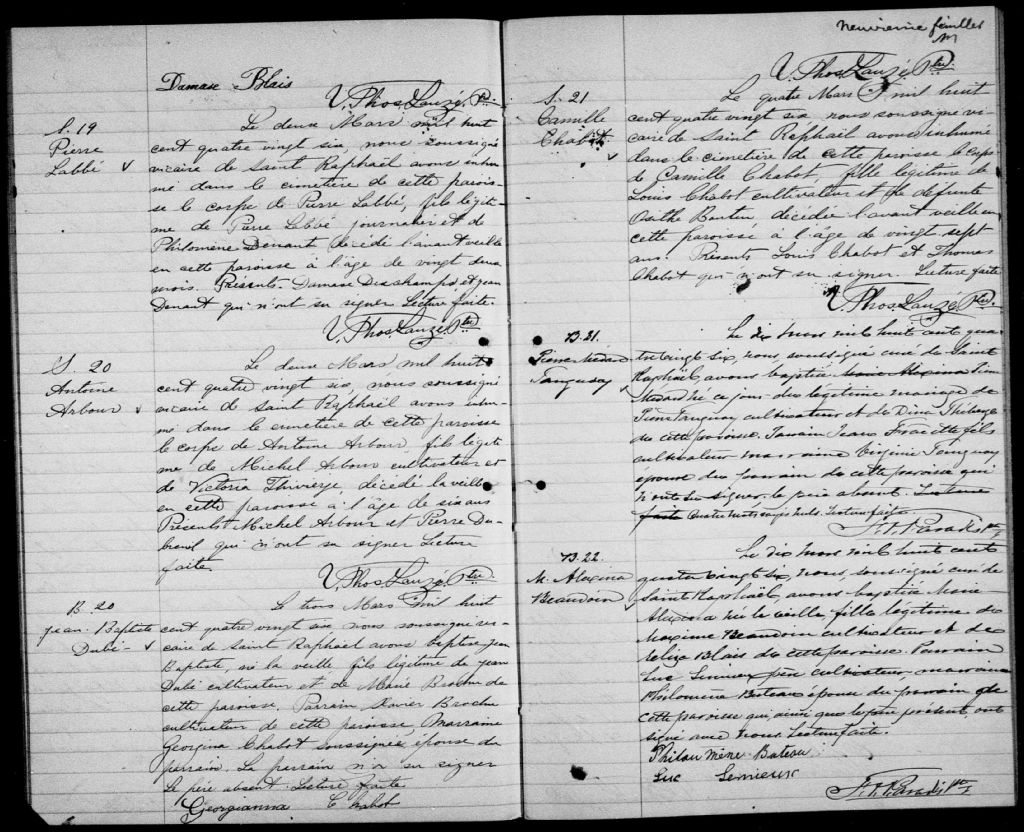 Damase Blais
V. Phos. Lauzé, Ptre
S. 19
Pierre
Labbé
Le deux Mars mil huit
cent quatre vingt six, nous soussigné
vicaire de Saint Raphaël avons inhu-
mé dans le cimetière de cette parois-
se le corps de Pierre Labbé, fils légiti-
me de Pierre Labbé journalier et de
Philomène Denaut décédé l'avant veille
en cette paroisse à l'âge de vingt deux
mois. Présents Damase Deschamps et Jean
Denaut qui n'ont su signer. Lecture faite.
V. Phos. Lauzé, Ptre
S. 20
Antoine
Arbour
Le deux Mars mil huit
cent quatre vingt six, nous soussigné
vicaire de Saint Raphaël avons inhu-
mé dans le cimetière de cette paroisse
le corps de Antoine Arbour, fils légiti-
me de Michel Arbour cultivateur et
de Victoria Thivierge, décédé la veille
en cette paroisse à l'âge de six ans
Présents Michel Arbour et Pierre Du-
breuil qui n'ont su signer Lecture
faite.
V. Phos. Lauzé, Ptre
B. 20
Jean-Baptiste
Dubé
Le trois Mars mil huit
cent quatre vingt six nous soussigné vi-
caire de Saint Raphaël avons baptisé Jean
Baptiste, né la veille fils légitime de Jean
Dubé cultivateur et de Marie Brochu de
cette paroisse, Parrain Xavier Brochu
cultivateur de cette paroisse, Marraine
Georgina Chabot soussignée, épouse du
parrain. Le parrain n'a su signer
Le père absent. Lecture faite
Georgianna Chabot
neuvième feuillet
V. Phos. Lauzé, Ptre
S. 21
Camille
Chabot
Le quatre Mars mil huit
cent quatre vingt six, nous soussigné vi-
caire de Saint Raphaël avons inhumé
dans le cimetière de cette paroisse le corps
de Camille Chabot, fille légitime de
Louis Chabot cultivateur et de défunte
Osithe Boutin décédée l'avant veille en
cette paroisse à l'âge de vingt sept
ans. Présents Louis Chabot et Thomas
Chabot qui n'ont su signer. Lecture faite
V. Phos. Lauzé, Ptre
B. 21.
Pierre Médard
Tanguay
Le dix mars mil huit cent qua-
tre vingt six, nous, soussigné curé de Saint
Raphaël, avons baptisé Marie Alexina Pierre
Médard né ce jour du légitime mariage de
Pierre Tanguay cultivateur et de Dina Théberge
de cette paroisse. Parrain Jean fils
cultivateur marraine Virginie Tanguay
épouse du parrain de cette paroisse qui
n'ont su signer, le père absent. Lecture
faite quatre mots rayés nuls. Lecture faite.
Paradis Ptre
B. 22.
M. Alexina
Beaudoin
Le dix mars mil huit cent
quatre vingt six, nous, soussigné curé de
Saint Raphaël, avons baptisé Marie
Alexina née la veille, fille légitime de
Maxime Beaudoin cultivateur et de
Zélire Blais de cette paroisse. Parrain
Luc Lemieux père cultivateur, marraine
Philomène Buteau épouse du parrain de
cette paroisse qui, ainsi que le père présent, ont
signé avec nous. Lecture faite.
Philau mène Bateau
Luc Lemieux
Paradis Ptre